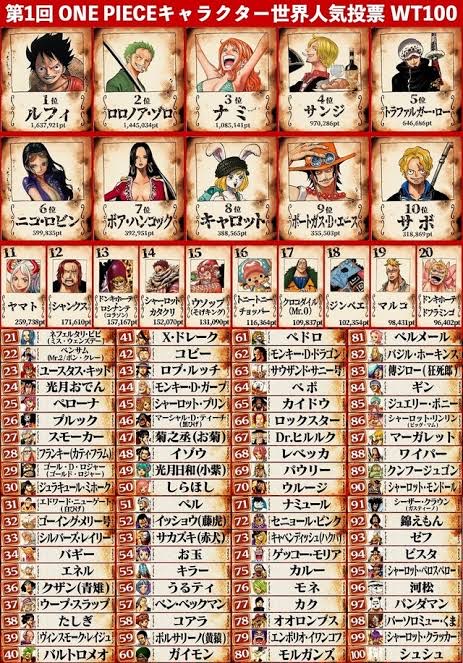 第1回 ONE PIECEキャラクター世界人気投票 WT100
1位
ルフィ
1,637,921pt
2位
ロロノア・ゾロ
1,445,034pt
3位
ナミ
1,085,141pt
4位
サンジ
970,286pt
5位
トラファルガー・ロー
646,686pt
6位
ニコ・ロビン
599,835pt
7位
ボア・ハンコック
392,951pt
8位
キャロット
388,565pt
9位
ポートガス・D・エース
355,503pt
10位
サボ
318,869pt
11
ヤマト
259,738pt
12
シャンクス
171,610pt
13
ドンキホーテ・
ロシナンテ
(コラソン)
157,167pt
14
シャーロット・
カタクリ
152,070pt
15
ウソップ
(そげキング)
131,090pt
16
トニートニー・
チョッパー
116,364pt
17
クロコダイル
(Mr.0)
109,837pt
18
ジンベエ
102,354pt
19
マルコ
98,431pt
20
ドンキホーテ・
ドフラミンゴ
96,402pt
21 ネフェルタリ・ビビ
(ミス・ウェンズデー)
22 ベンサム
(Mr.2/ボン・クレー)
23 ユースタス・キッド
24 光月おでん
25 ペローナ
26 ブルック
27 スモーカー
28 フランキー(カティ・フラム)
29 ゴール・D・ロジャー
(ゴールド・ロジャー)
30 ジュラキュール・ミホーク
31 エドワード・ニューゲート
(白ひげ)
32 ゴーイング・メリー号
33 シルバーズ・レイリー
34 バギー
35 エネル
36 クザン(青雉)
37 ウープ・スラップ
38 たしぎ
39 ヴィンスモーク・レイジュ
40 バルトロメオ
41 X・ドレーク
42 コビー
43 ロブ・ルッチ
44 モンキー・D・ガープ
45 シャーロット・プリン
46 マーシャル・D・ティーチ
(黒ひげ)
47 菊之丞(お菊)
48 イゾウ
49 光月日和(小紫)
50 しらほし
51 ベル
52 イッショウ(藤虎)
53 サカズキ(赤犬)
54 お玉
55 キラー
56 うるティ
57 ベン・ベックマン
58 コアラ
59 ボルサリーノ(黄猿)
60 ガイモン
61 ペドロ
62 モンキー・D・ドラゴン
63 サウザンド・サニー号
64 ベポ
65 カイドウ
66 ロックスター
67 Dr.ヒルルク
68 レベッカ
69 パウリー
70 ウルージ
71 ナミュール
72 セニョール・ピンク
73 キャベンディッシュ(ハクバ)
74 ゲッコー・モリア
75 カルー
76 モネ
77 カク
78 オオロンブス
79 エンポリオ・イワンコフ
80 モルガンズ
81 ベルメール
82 バジル・ホーキンス
83 傳ジロー(狂死郎)
84 ギン
85 ジュエリー・ボニー
86 シャーロット・リンリン
(ビッグ・マム)
87 マーガレット
88 ワイパー
89 クンフージュゴン
90 シャーロット・モンドール
91 シーザー・クラウン
(ガスティーノ)
92 錦えもん
93 ゼフ
94 ビスタ
95 シャーロット・ペロスペロー
96 河松
97 パンダマン
98 バーソロミュー・くま
99 シャーロット・クラッカー
100 シュシュ